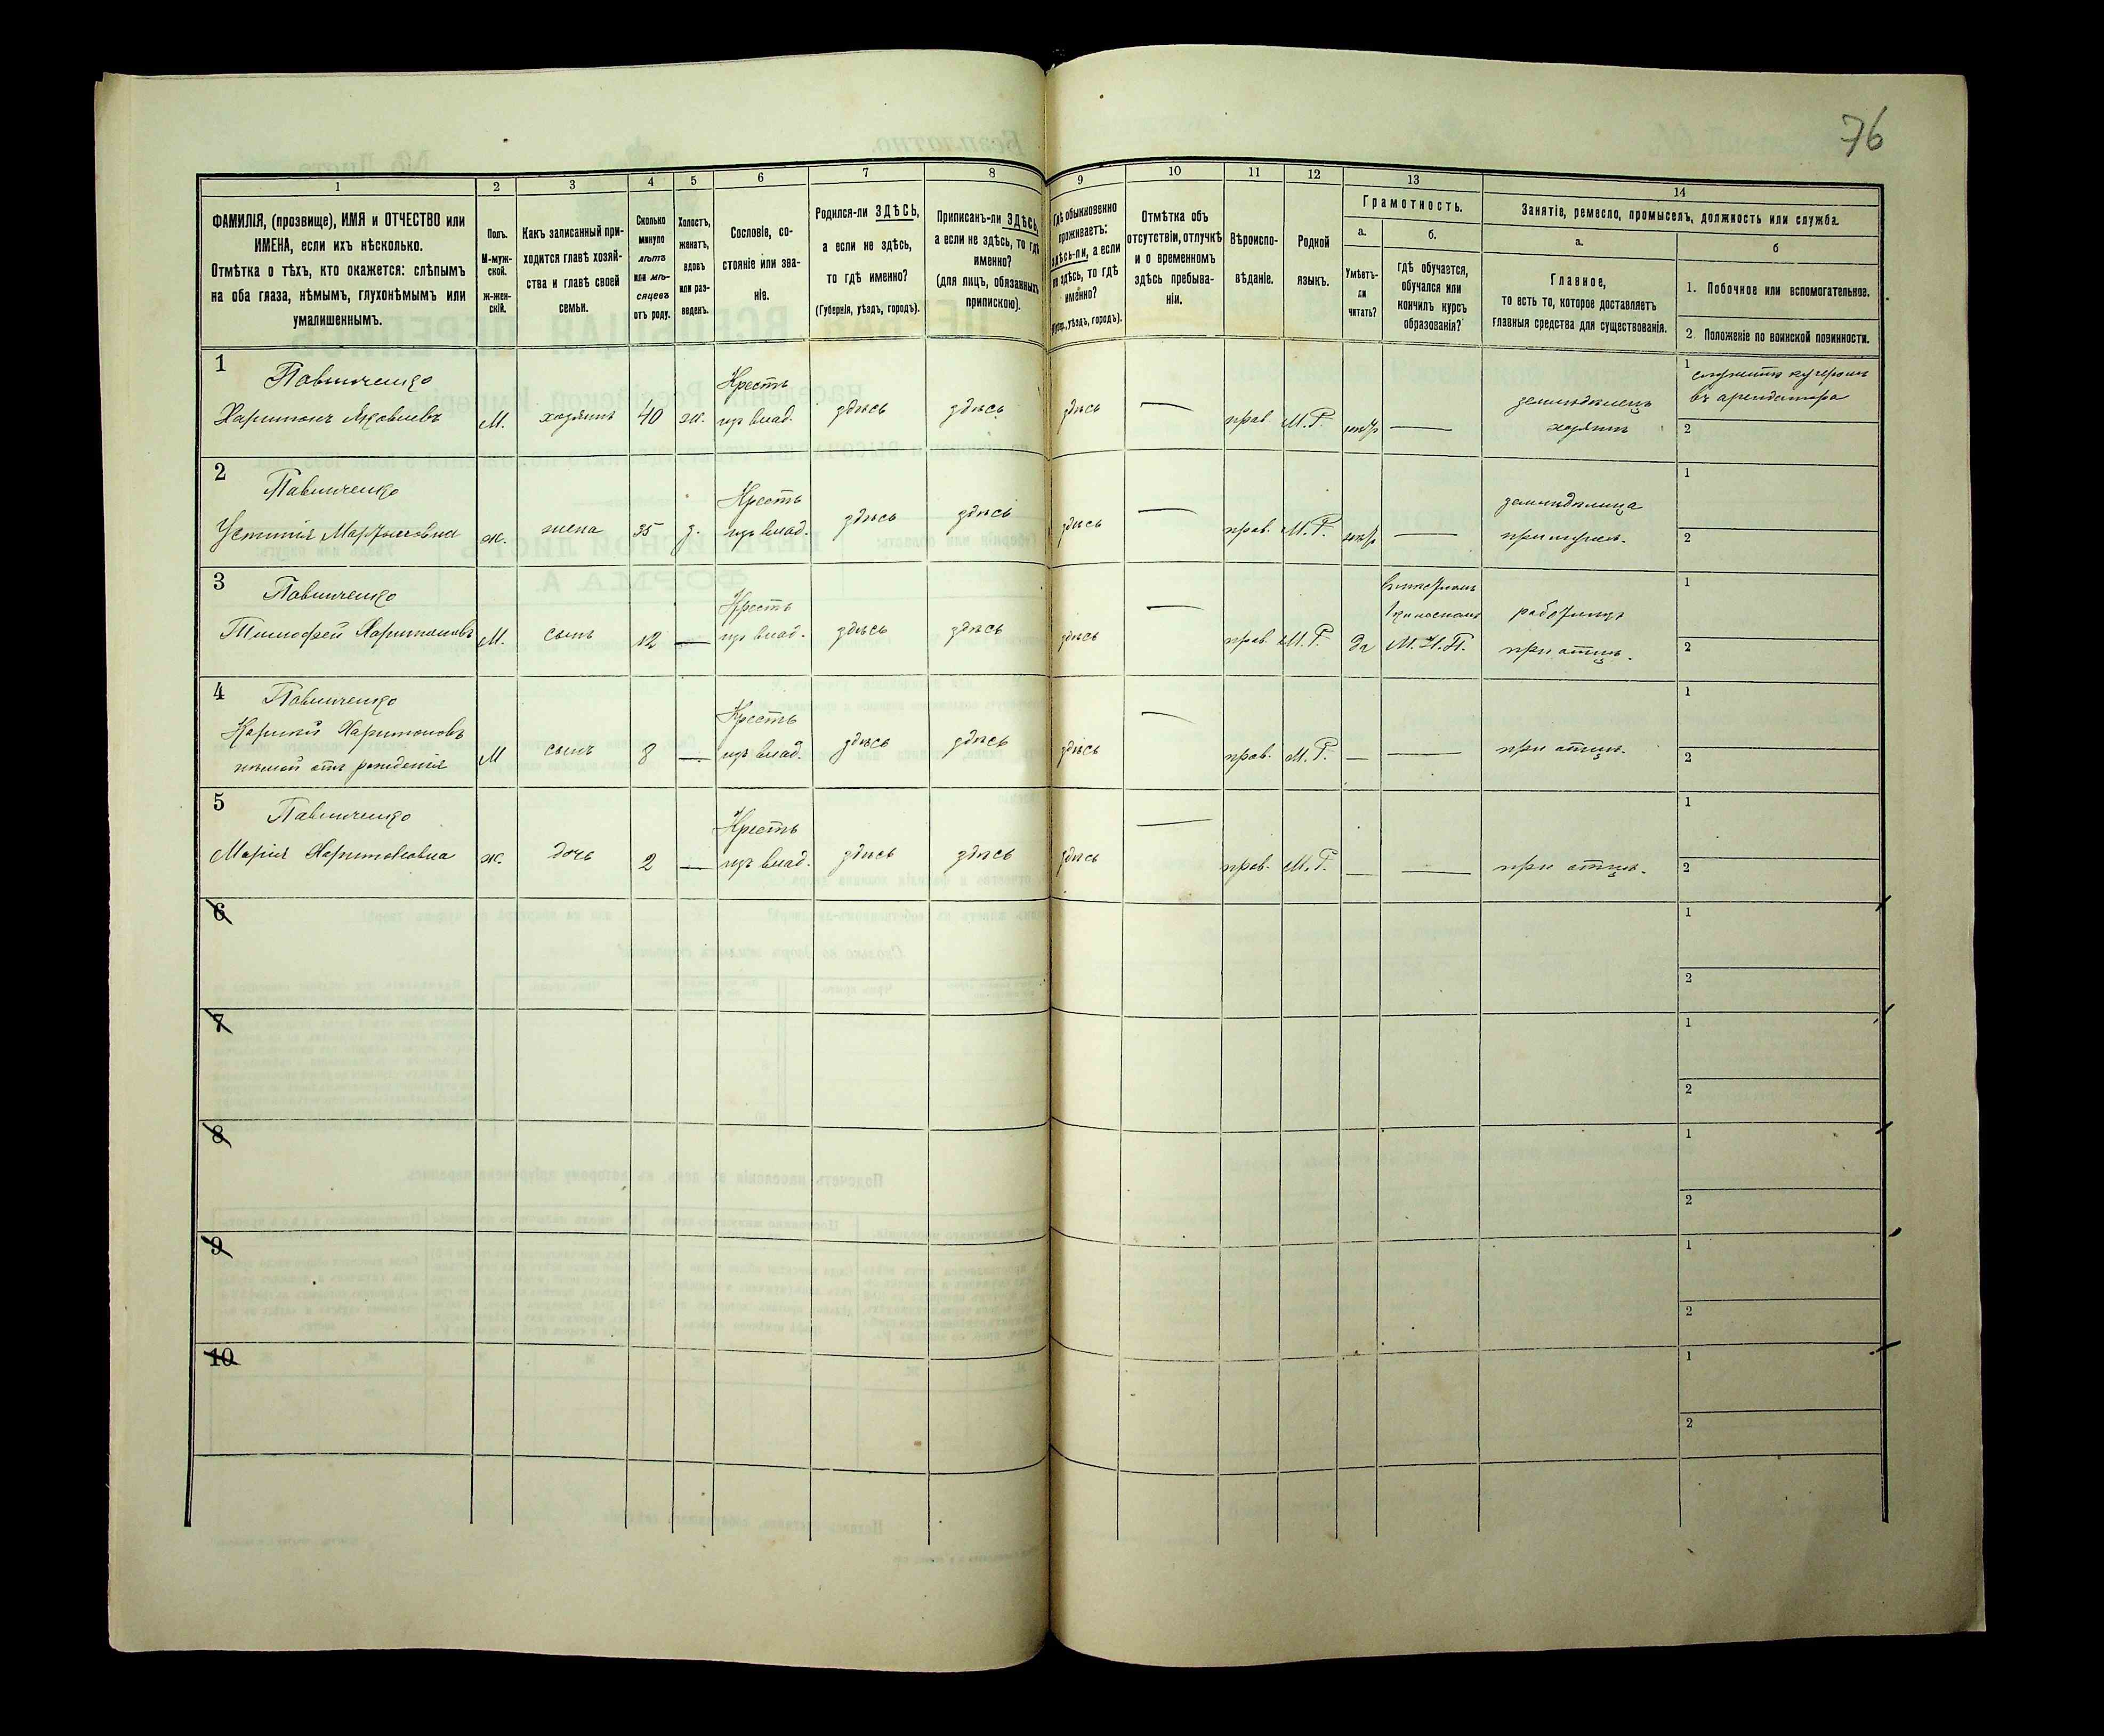 76
1
2
3
4
5
6
7
8
9
10
11
12
13
14
ФАМИЛІЯ, (прозвище), ИМЯ и ОТЧЕСТВО или
ИМЕНА, если ихъ нѣсколько.
Отмѣтка о тѣхъ, кто окажется: слѣпымъ
на оба глаза, нѣмымъ, глухонѣмымъ или
умалишеннымъ.
Полъ.
М-муж-
ской.
ж-жен-
скій.
Какъ записанный при-
ходится главѣ хозяй-
ства и главѣ своей
семьи.
Сколько
минуло
лѣтъ
или мѣ-
сяцевъ
отъ роду.
Холостъ,
женатъ,
вдовъ
или раз-
веденъ.
Сословіе, со-
стояніе или зва-
ніе.
Родился-ли ЗДѢСЬ,
а если не здѣсь,
то гдѣ именно?
(Губернія, уѣздъ, городъ).
Приписанъ-ли ЗДѢСЬ,
а если не здѣсь, то гдѣ
именно?
(для лицъ, обязанныхъ
припискою).
Гдѣ обыкновенно
проживаетъ:
здѣсь-ли, а если
не здѣсь, то гдѣ
именно?
(Губер., уѣздъ, городъ).
Отмѣтка объ
отсутствіи, отлучкѣ
и о временномъ
здѣсь пребыва-
ніи.
Вѣроиспо-
вѣданіе.
Родной
языкъ.
Грамотность.
а.
Умѣетъ-
ли
читать?
б.
гдѣ обучается,
обучался или
кончилъ курсъ
образованія?
Занятіе, ремесло, промыселъ, должность или служба.
а.
Главное,
то есть то, которое доставляетъ
главныя средства для существованія.
б
1. Побочное или вспомогательное.
2. Положеніе по воинской повинности.
1
Павличенко
Харитонъ Яковлевъ
М. хозяинъ 40 ж.
Крестъ
изъ влад.
здѣсь здѣсь здѣсь — прав. М. Р. —
земледѣлецъ
хозяинъ
1 служитъ кучеромъ
въ арендатора
2
2
Павличенко
Устинія
ж. жена 35 з.
Крестъ
изъ влад.
здѣсь здѣсь здѣсь — прав. М. Р. —
земледѣлица
при мужѣ.
1
2
3
Павличенко
Тимофей Харитоновъ
М. сынъ 12 —
Крестъ
изъ влад.
здѣсь здѣсь здѣсь — прав. М. Р. да
М. Н. П.
при отцѣ.
1
2
4
Павличенко
Харитоновъ
нѣмой отъ рожденія
М сынъ 8 —
Крестъ
изъ влад.
здѣсь здѣсь здѣсь — прав. М. Р. — —
при отцѣ.
1
2
5
Павличенко
Марія Харитоновна
ж. дочь 2 —
Крестъ
изъ влад.
здѣсь здѣсь здѣсь — прав. М. Р. — —
при отцѣ.
1
2
6
1
2
7
1
2
8
1
2
9
1
2
10
1
2